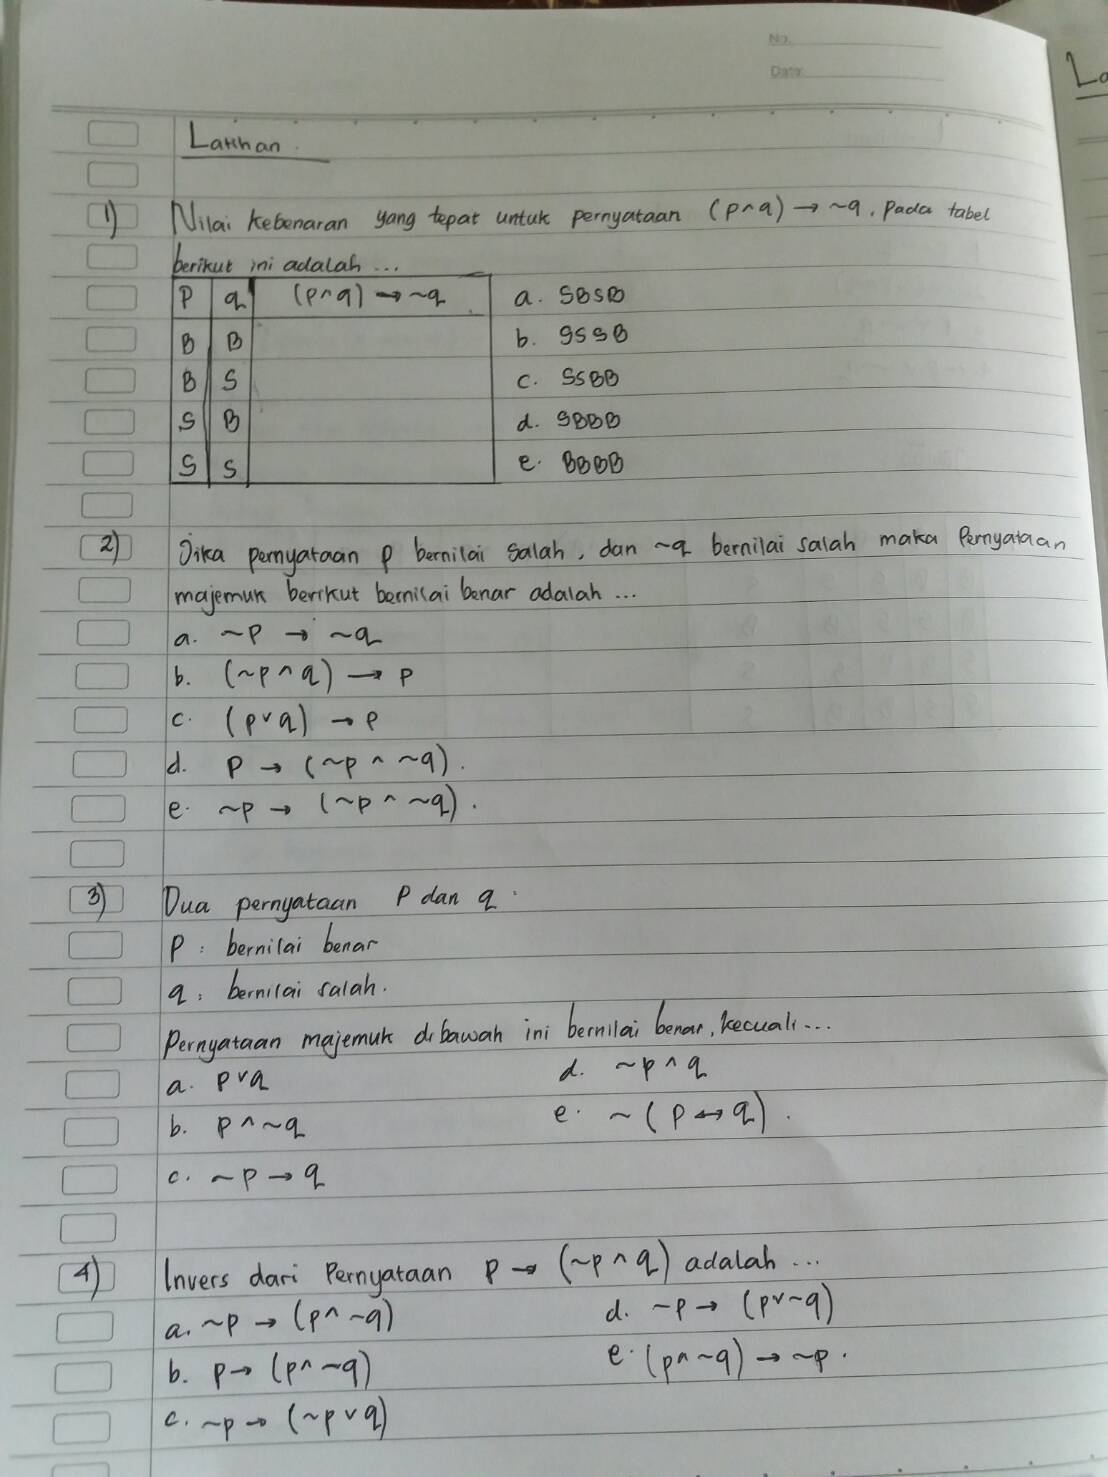 No.
Date
La
Latihan.
1) Nilai kebenaran yang tepat untuk pernyataan (p^q) → ~q, pada tabel
berikut ini adalah ...
P q (p^q) → ~q a. SBSB
B B b. SSSB
B S c. SSBB
S B d. SBBB
S S e. BBBB
2) Jika pernyataan p bernilai salah, dan ~q bernilai salah maka Pernyataan
majemuk berikut bernilai benar adalah ...
a. ~p → ~q
b. (~p ^ q) → p
c. (p v q) → p
d. p → (~p ^ ~q).
e. ~p → (~p ^ ~q).
3) Dua pernyataan P dan q.
P : bernilai benar
q : bernilai salah.
Pernyataan majemuk dibawah ini bernilai benar, kecuali ...
a. p v q d. ~p ^ q
b. p ^ ~q e. ~(p ↔ q).
c. ~p → q
4) Invers dari Pernyataan p → (~p ^ q) adalah ...
a. ~p → (p ^ ~q) d. ~p → (p v ~q)
b. p → (p ^ ~q) e. (p ^ ~q) → ~p.
c. ~p → (~p v q)